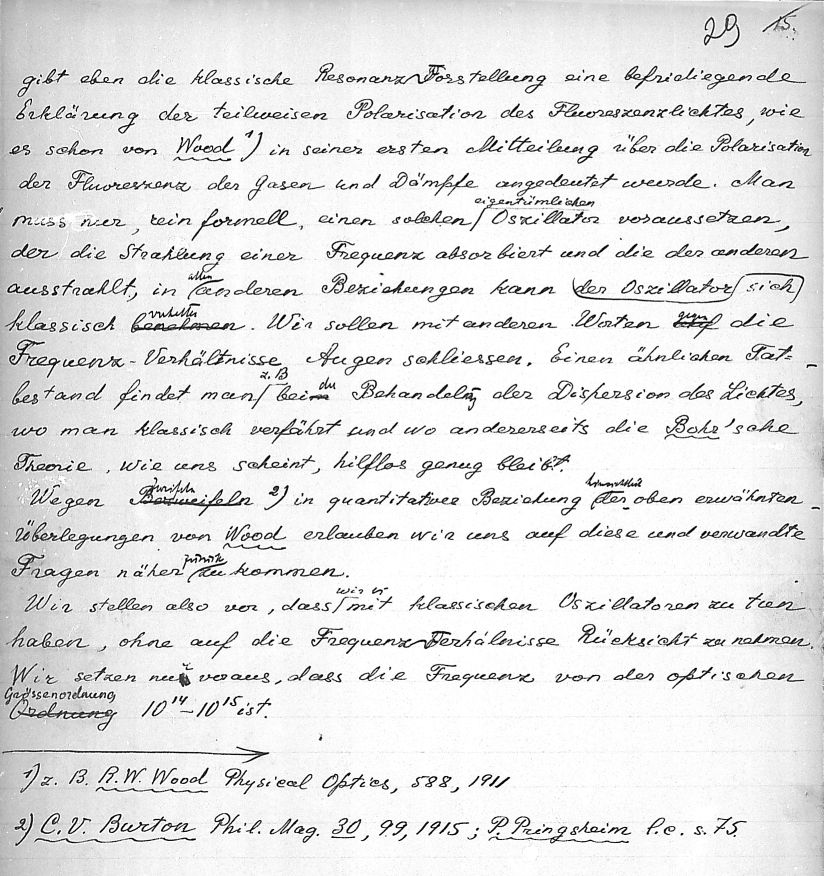 29 15.
gibt eben die klassische Resonanz-Vorstellung eine befridiegende
Erklärung der teilweisen Polarisation des Fluoreszenzlichtes, wie
es schon von Wood 1) in seiner ersten Mitteilung über die Polarisation
der Fluoreszenz der Gasen und Dämpfe angedeutet wurde. Man
eigentümlichen
muss nur, rein formell, einen solchen Oszillator voraussetzen,
der die Strahlung einer Frequenz absorbiert und die der anderen
allen
ausstrahlt, in anderen Beziehungen kann der Oszillator sich
verhalten
klassisch benehmen. Wir sollen mit anderen Worten auf die
gegen
Frequenz-Verhältnisse Augen schliessen. Einen ähnlichen Tat-
z. B. der
bestand findet man beim Behandelng der Dispersion des Lichtes,
wo man klassisch verfährt und wo andererseits die Bohr'sche
Theorie, wie uns scheint, hilflos genug bleibt.
Zweifeln hinsichtlich
Wegen Bezweifeln 2) in quantitativer Beziehung der oben erwähnten
Überlegungen von Wood erlauben wir uns auf diese und verwandte
zurück
Fragen näher zu kommen.
wir es
Wir stellen also vor, dass mit klassischen Oszillatoren zu tun
haben, ohne auf die Frequenz-Verhälnisse Rücksicht zu nehmen.
Wir setzen nur voraus, dass die Frequenz von der optischen
Grössenordnung
Ordnung 10¹⁴–10¹⁵ ist.
1) z. B. R.W. Wood Physical Optics, 588, 1911
2) C. V. Burton Phil. Mag. 30, 99, 1915; P. Pringsheim l.c. s. 75.